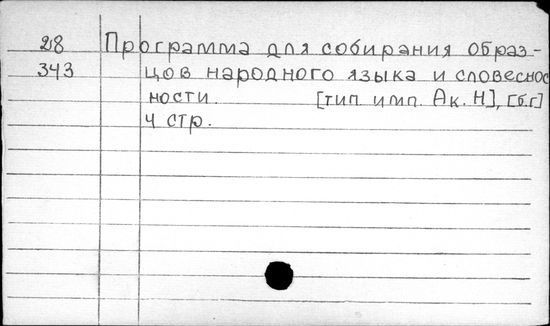 28 Программа для собирания образ-
343 цов народного языка и словеснос
ности. [тип. имп. Ак. Н], [б.г]
4 стр.